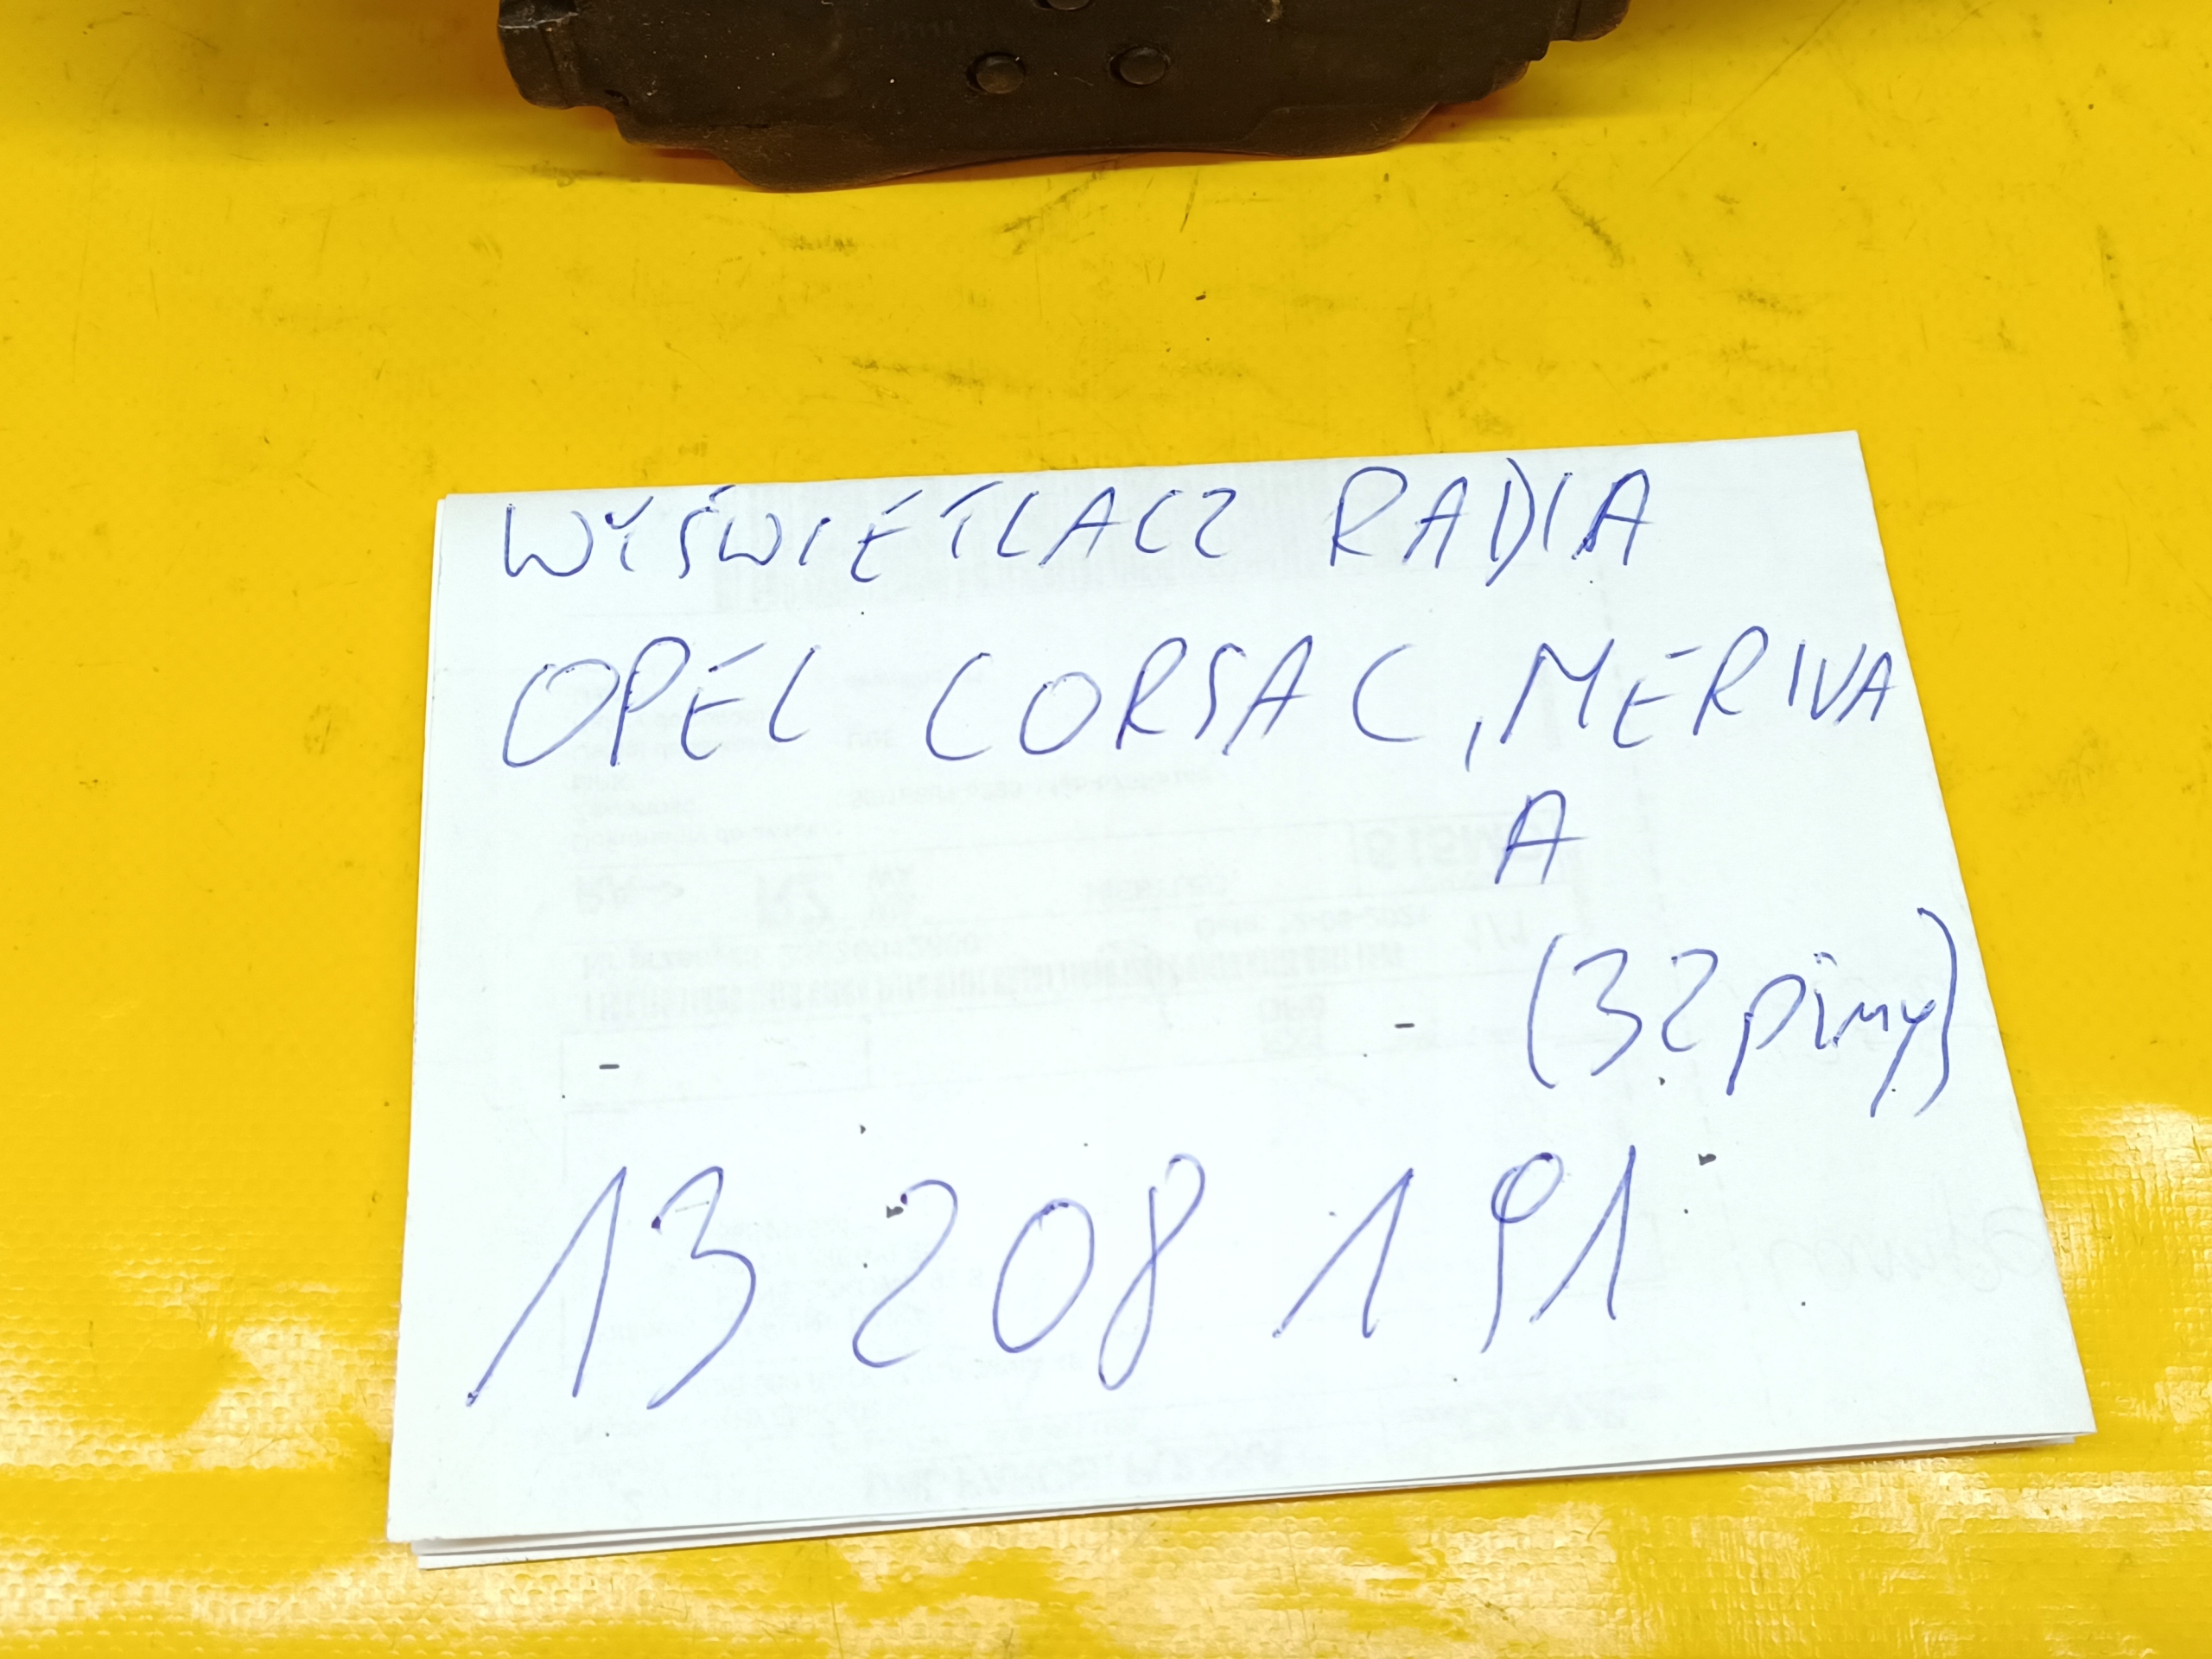 WYŚWIETLACZ RADIA
OPEL CORSA C, MERIVA
A
(32 piny)
13 208 191